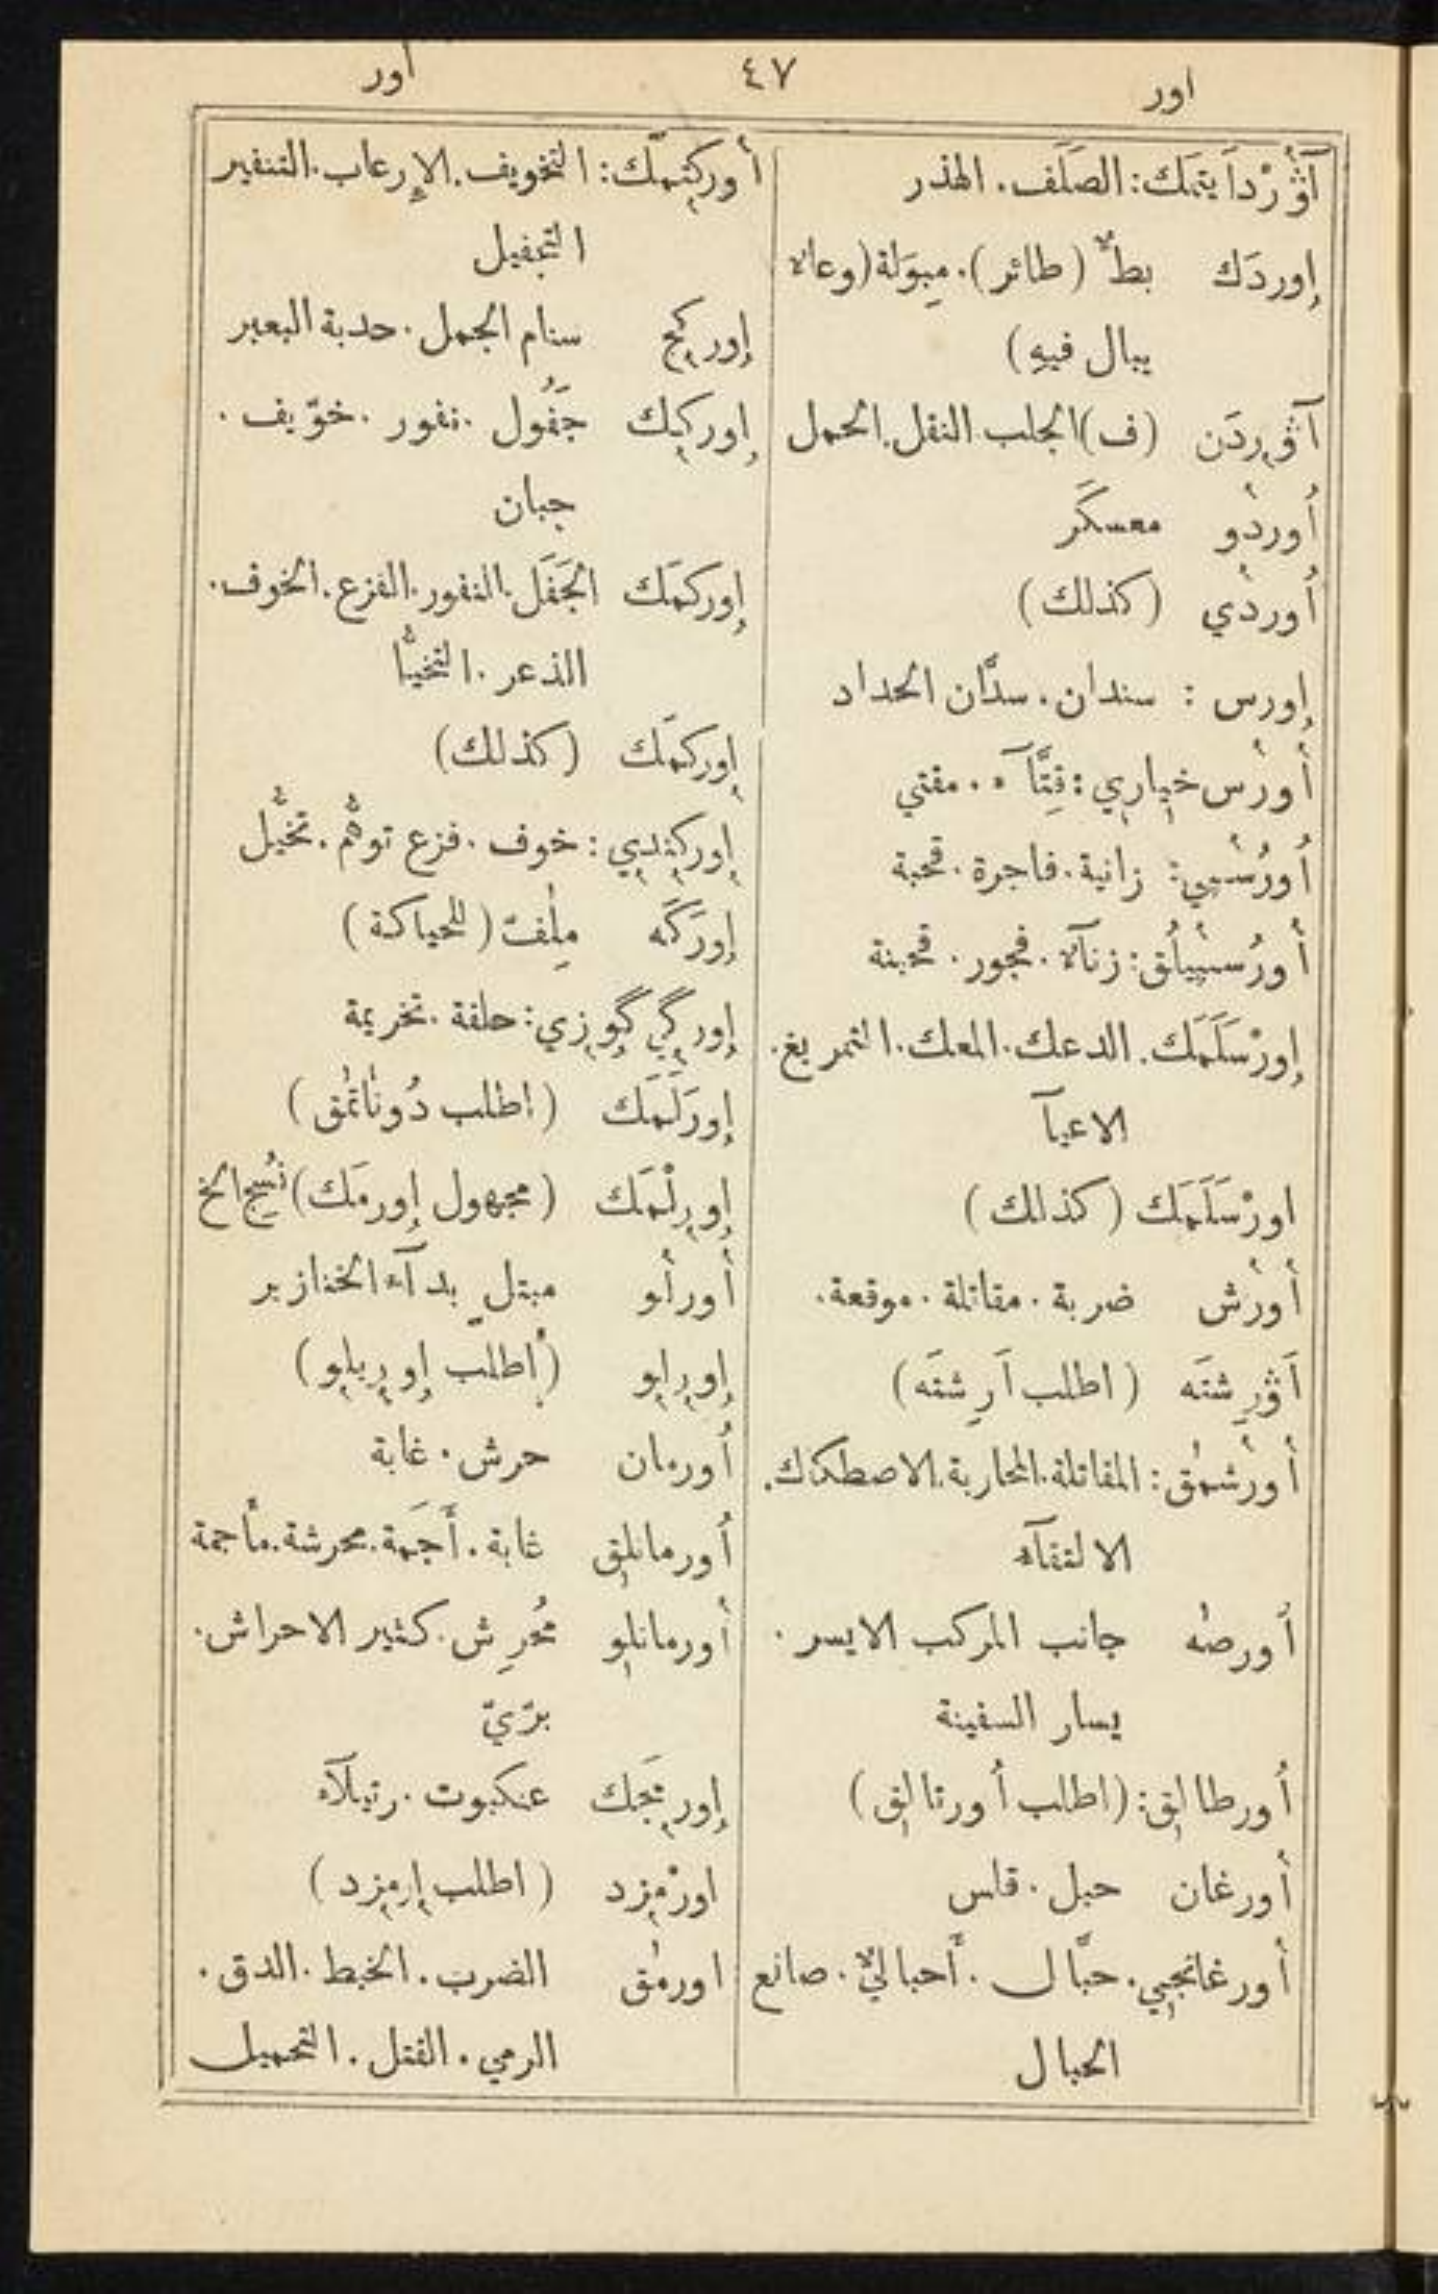 اور
٤٧
اور
آوُرْدَايتمَك: الصَلَف. الهذر
إوردَك بطّ (طائر). مِبوَلة (وعاء
يبال فيهِ)
آوردَن (ف) الجلب. النقل. الحمل
أوردو معسكَر
أوردي (كذلك)
إورس: سندان. سدَّان الحداد
أورس خياري: قِتَّآء. مقتي
أورُسپي: زانية. فاجرة. قحبة
أورُسپيلُق: زنآء. فجور. قحبنة
إورْسَلَمَك. الدعك. المعك. التمريغ.
الاعيآ
اورْسَلَمَك (كذلك)
أورُش ضربة. مقاتلة. موقعة.
آورِشتَه (اطلب آرِشتَه)
أورُشمق: المقاتلة. المحاربة. الاصطكاك.
الالتقآء
أورصه جانب المركب الايسر.
يسار السفينة
أورطالق: (اطلب أورتالق)
أورغان حبل. قلس
أورغانجي. حبَّال. أحباليّ. صانع
الحبال
أوركتمَك: التخويف. الإرعاب. التنفير
التجفيل
إوركج سنام الجمل. حدبة البعير
إوركك جَفُول. نفور. خوّيف.
جبان
إوركمَك الجَفَل. النفور. الفزع. الخوف.
الذعر. التخيُّل
إوركمَك (كذلك)
إوركندي: خوف. فزع توهُّم. تخيُّل
إورَكَه مِلَفّ (للحياكة)
إورگي گوزي: حلقة. تخريمة
إورَلَمَك (اطلب دُوناتمق)
إورِلْمَك (مجهول إورمَك) نُسِج الخ
أورلو مبتلٍ بدآء الخنازير
إورلو (اطلب إوريلو)
أورمان حرش. غابة
أورمانلق غابة. أَجَمة. محرشة. مأجمة
أورمانلو مُحرِش. كثير الاحراش.
برّيّ
إورمجَك عنكبوت. رتيلآء
اورْمزد (اطلب إرمزد)
اورمق الضرب. الخبط. الدق.
الرمي. القتل. التحميل